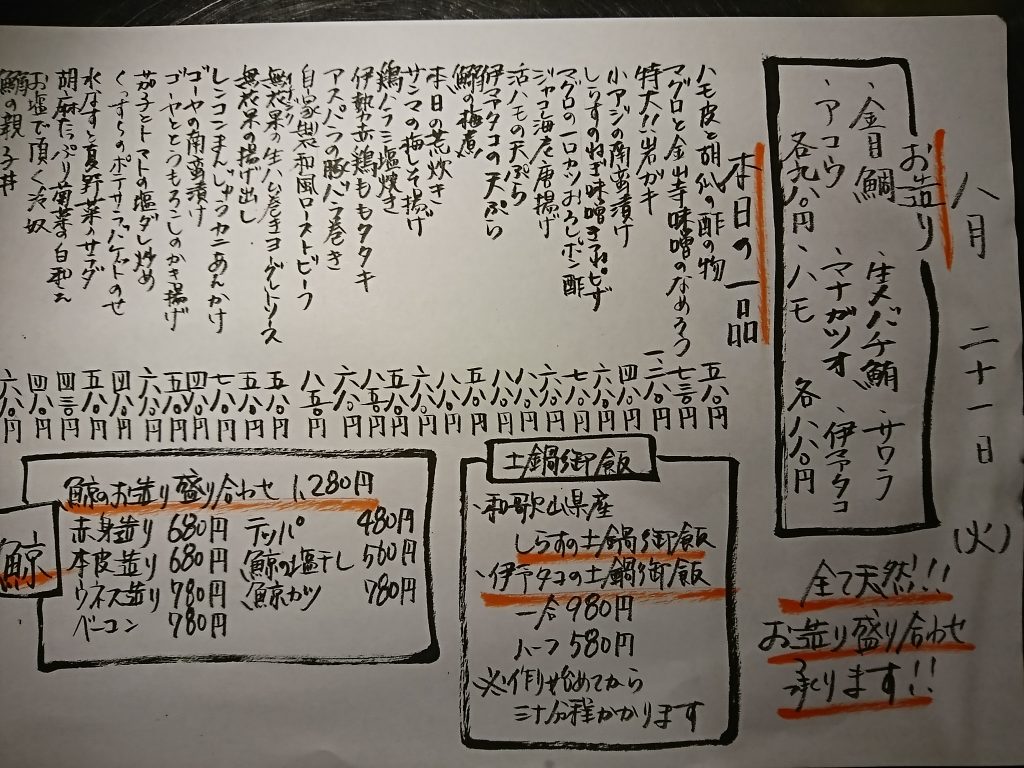 八月二十一日(火)
お造り
、金目鯛 、生メバチ鮪 、サワラ
、アコウ 、マナガツオ 、伊予ダコ
各九八〇円 、ハモ 各八八〇円
全て天然!!
お造り盛り合わせ
承ります!!
本日の一品
ハモ皮と胡瓜の酢の物 五八〇円
マグロと金山寺味噌のなめろう 七三〇円
特大!!岩ガキ 一、二八〇円
小アジの南蛮漬け 四八〇円
しらすのねぎ味噌ピザ 六八〇円
マグロの一口カツおろしポン酢 七八〇円
ジャコ海老唐揚げ 六八〇円
活ハモの天ぷら 八八〇円
伊予ダコの天ぷら 八八〇円
鯛の梅煮 五八〇円
本日の荒炊き 八八〇円
サンマの梅しそ揚げ 八八〇円
鶏ハラミ塩焼き 五八〇円
伊勢赤鶏ももタタキ 八五〇円
アスパラの豚バラ巻き 六八〇円
自家製和風ローストビーフ 八五〇円
無花果の生ハム巻きヨーグルトソース 五八〇円
無花果の揚げ出し 五八〇円
レンコンまんじゅうカニあんかけ 七八〇円
ゴーヤの南蛮漬け 四八〇円
ゴーヤととうもろこしのかき揚げ 五八〇円
茄子とトマトの塩ダレ炒め 六八〇円
くつすらのポテサラバゲットのせ 四八〇円
水なすと夏野菜のサラダ 五八〇円
胡麻たっぷり菊菜の白和え 四三〇円
お塩で頂く冷奴 四八〇円
鯛の親子丼 六八〇円
土鍋御飯
、和歌山県産
しらすの土鍋御飯
、伊予ダコの土鍋御飯
一合 980円
ハーフ 580円
※作り始めてから
三十分程かかります
鯨
鯨のお造り盛り合わせ 1,280円
赤身造り 680円 テッパ 480円
本皮造り 680円 鯨の塩干し 560円
ウネス造り 780円 鯨カツ 780円
ベーコン 780円